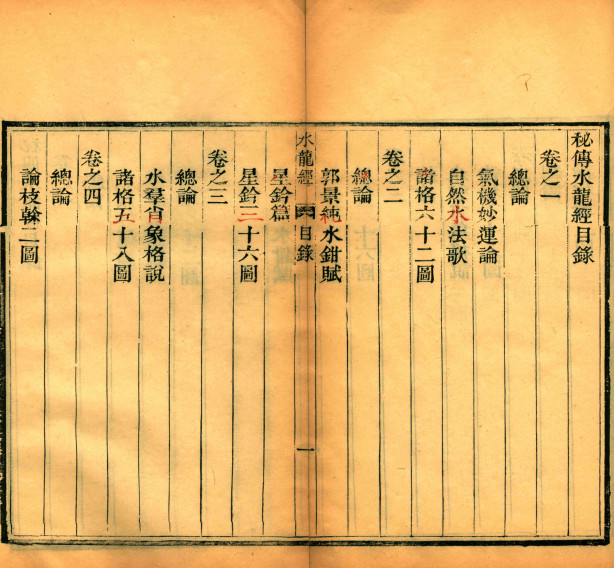 秘傳水龍經目錄
卷之一
總論
氣機妙運論
自然水法歌
諸格六十二圖
卷之二
總論
郭景純水鉗賦
水龍經 目錄 一
星鈐篇
星鈐三十六圖
卷之三
總論
水羣百象格說
諸格五十八圖
卷之四
總論
論枝幹二圖